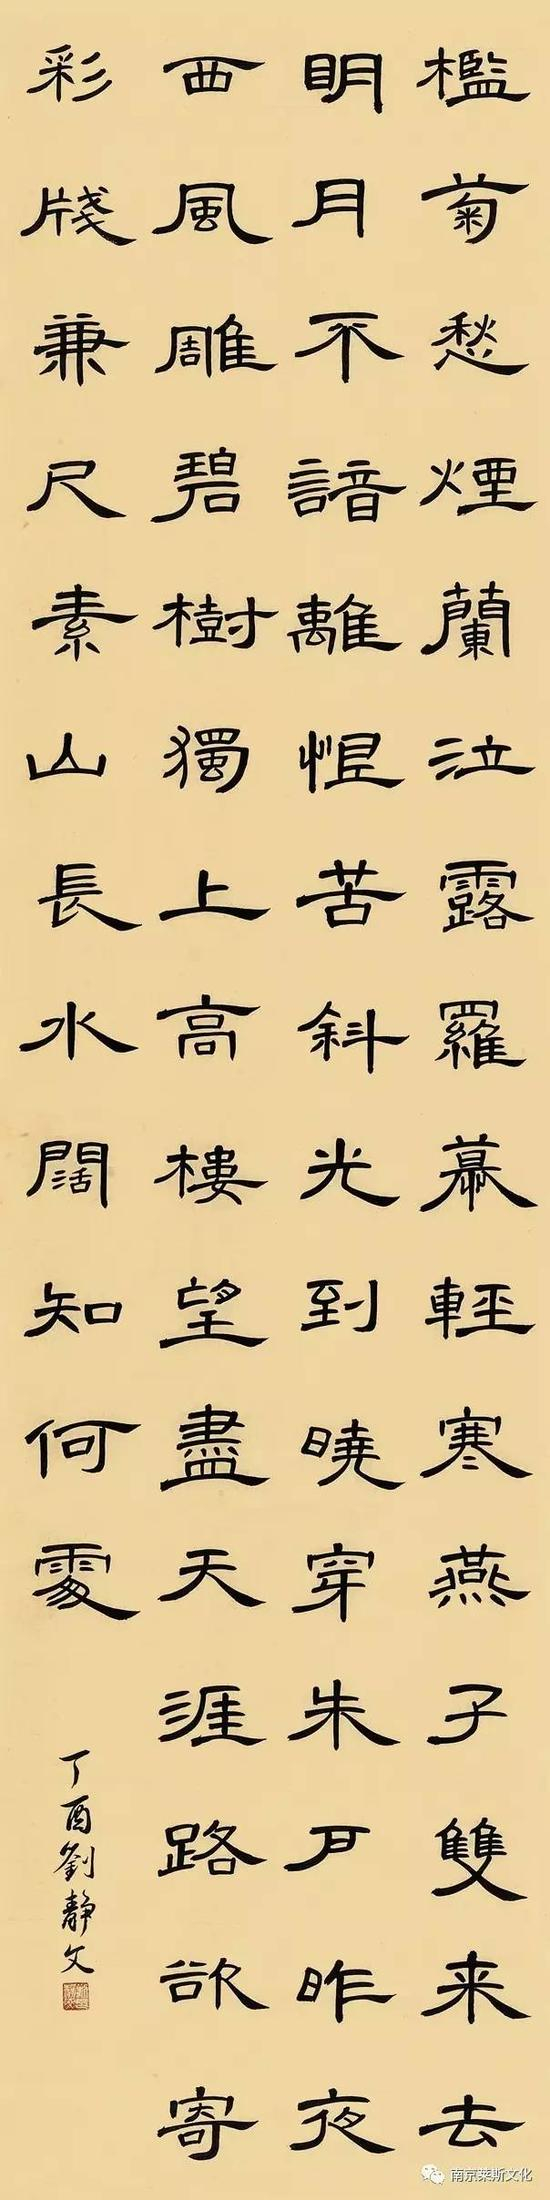 檻菊愁煙蘭泣露羅幕輕寒燕子雙来去
明月不諳離恨苦斜光到曉穿朱戶昨夜
西風雕碧樹獨上高樓望盡天涯路欲寄
彩牋兼尺素山長水闊知何處
丁酉劉靜文
南京莱斯文化